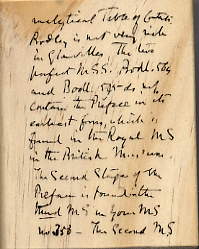 Analytical Table of Contents
Bodley is not very rich
in Glanvilles. The two
perfect MSS. Bodl. 564
and Bodl. do
contain the Preface in its
earliest form, which is
found in the Royal MS
in the British Museum.
The Second Stage of the
Preface is found in the
MS in your MS
no 350 — The Second MS